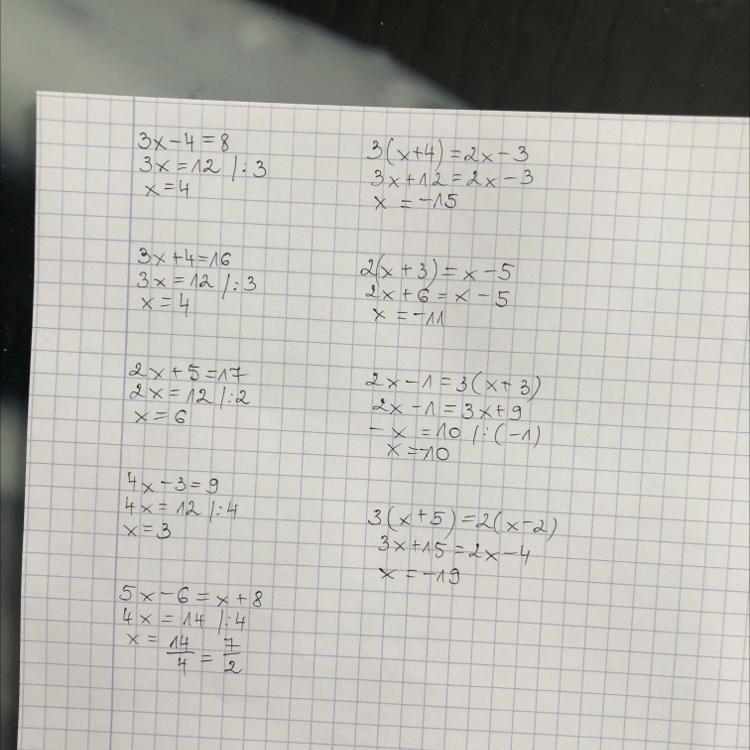 3x-4=8
3x=12 /:3
x=4
3x+4=16
3x=12 /:3
x=4
2x+5=17
2x=12 /:2
x=6
4x-3=9
4x=12 /:4
x=3
5x-6=x+8
4x=14 /:4
x=14/4=7/2
3(x+4)=2x-3
3x+12=2x-3
x=-15
2(x+3)=x-5
2x+6=x-5
x=-11
2x-1=3(x+3)
2x-1=3x+9
-x=10 /:(-1)
x=-10
3(x+5)=2(x-2)
3x+15=2x-4
x=-19